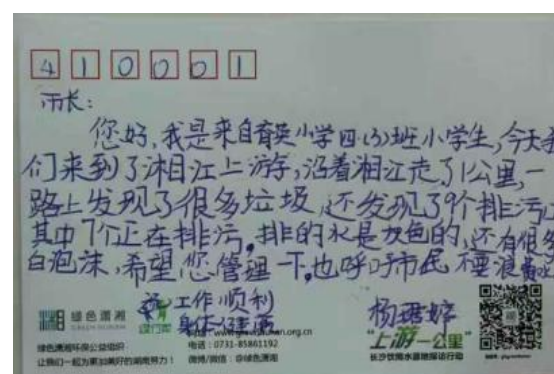 410001
市长:
您好,我是来自育英小学四(3)班小学生,今天我
们来到了湘江上游,沿着湘江走了1公里,一
路上发现了很多垃圾,还发现了9个排污口
其中7个正在排污。排的水是灰色的,还有很多
白泡沫,希望您管理一下,也呼吁市民不要浪费水
祝工作顺利
身体健康
杨
绿色潇湘
GREEN HUNAN
绿行家
绿色潇湘环保公益组织
让我们一起为更加美好的湖南努力!
电话:0731-85861192
微博/微信:@绿色潇湘
"上游一公里"
长沙饮用水源地探访行动